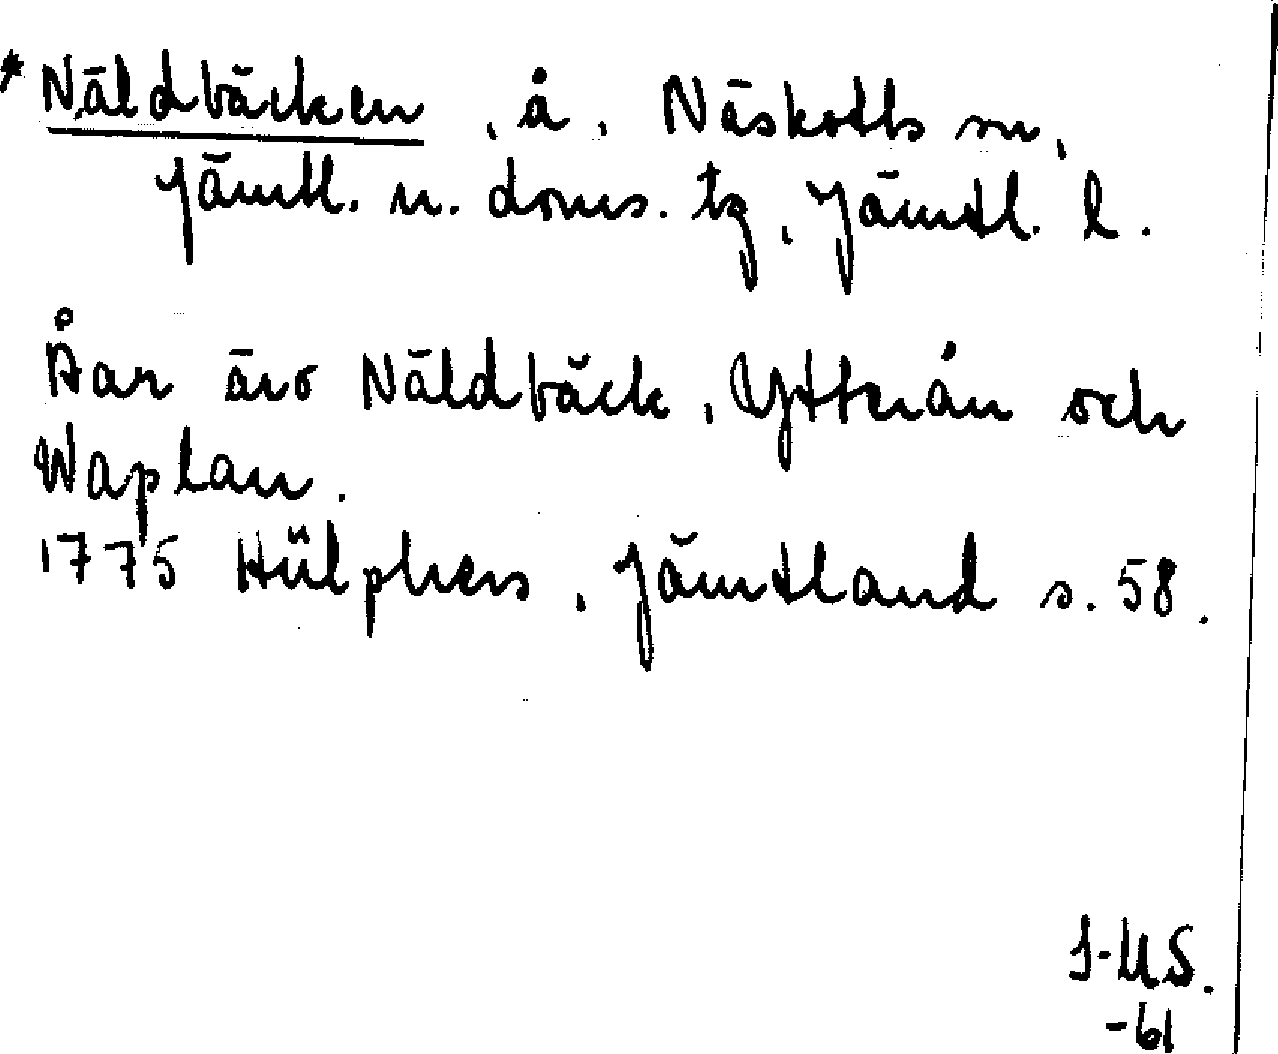 * Näldbäcken, å, Näskotts sn,
Jämtl. n. doms. tg, Jämtl. l.
Åar äro Näldbäck, Ytterån och
Waplan.
1775 Hülphers, Jämtland s. 58.
J-US.
-61